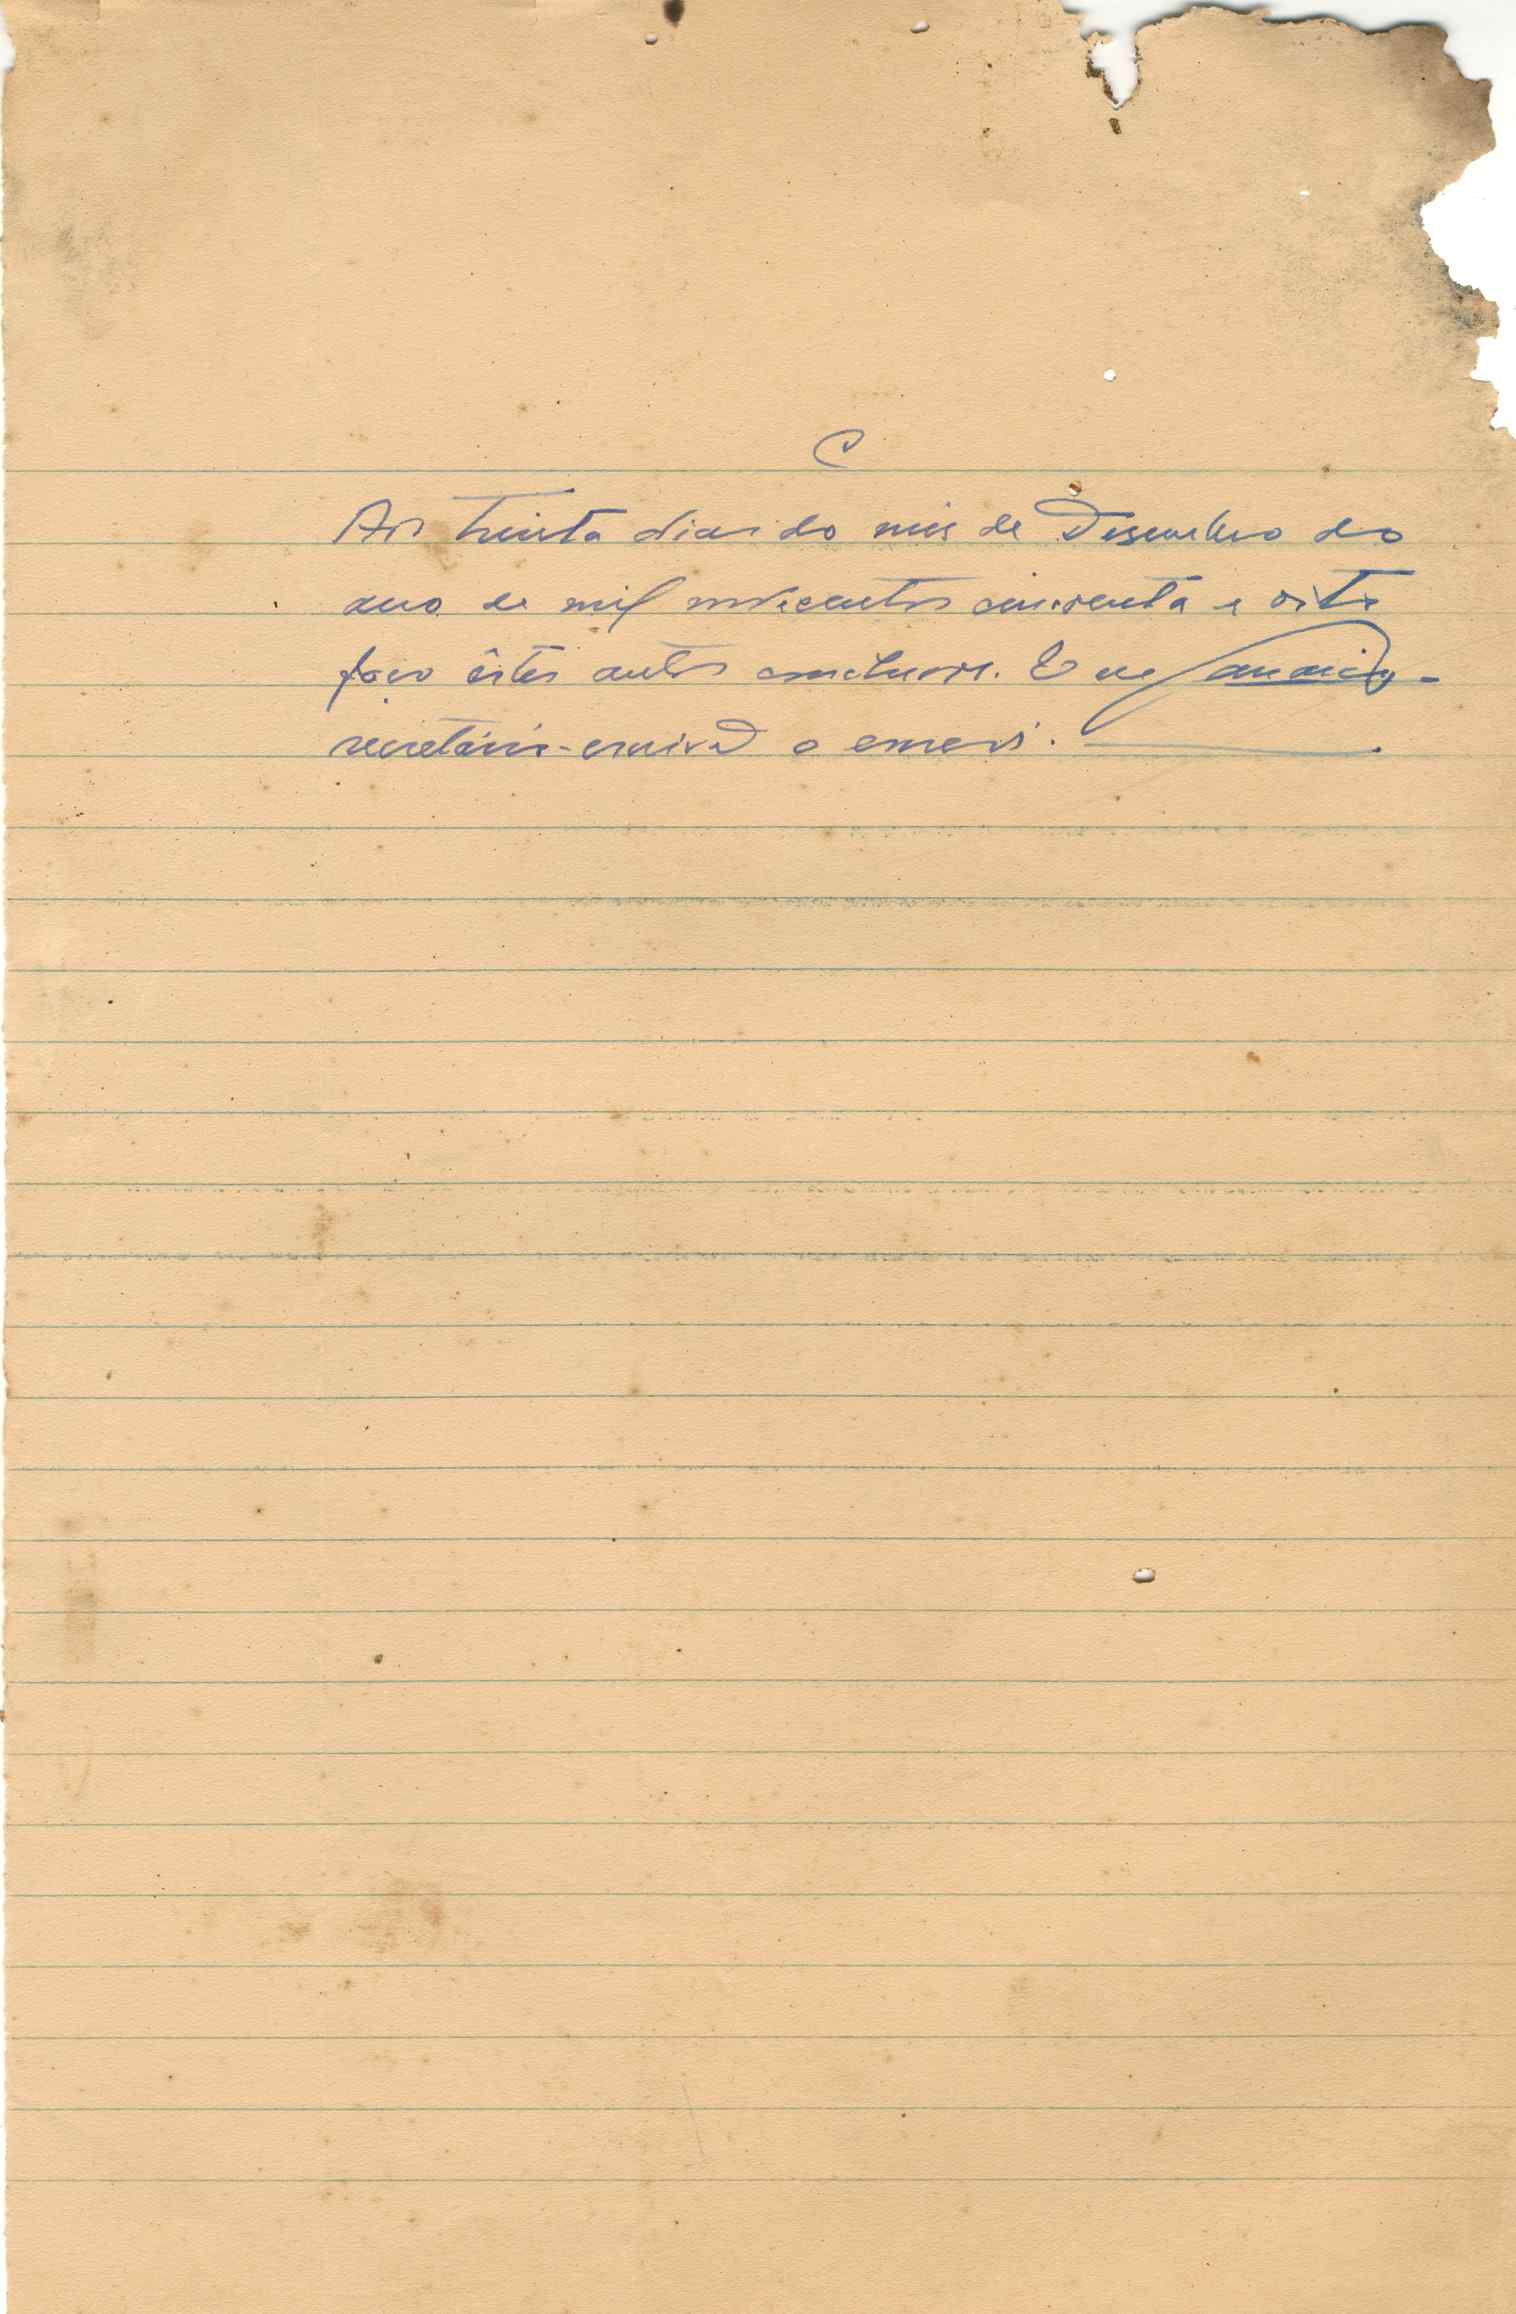 C
Aos trinta dias do mês de Dezembro do
ano de mil novecentos cincoenta e oito
faço êstes autos conclusos. E eu
secretário-escrivão o escrevi.